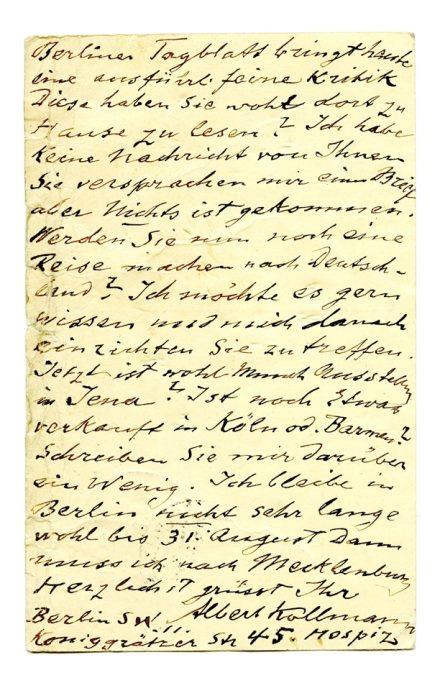 Berliner Tagblatt bringt heute
eine ausführl. feine Kritik
Diese haben Sie wohl dort zu
Hause zu lesen? Ich habe
keine Nachricht von Ihnen
Sie versprachen mir einen Brief
aber Nichts ist gekommen.
Werden Sie nun noch eine
Reise machen nach Deutsch-
land? Ich möchte es gern
wissen und mich danach
einrichten Sie zu treffen.
Jetzt ist wohl Munch Ausstellung
in Jena? Ist noch Etwas
verkauft in Köln od. Barmen?
Schreiben Sie mir darüber
ein Wenig. Ich bleibe in
Berlin nicht sehr lange
wohl bis 31. August Dann
muss ich nach Mecklenburg
Herzlichst grüsst Ihr
Albert Kollmann
Berlin SW 11
Königgrätzer Str 45. Hospiz